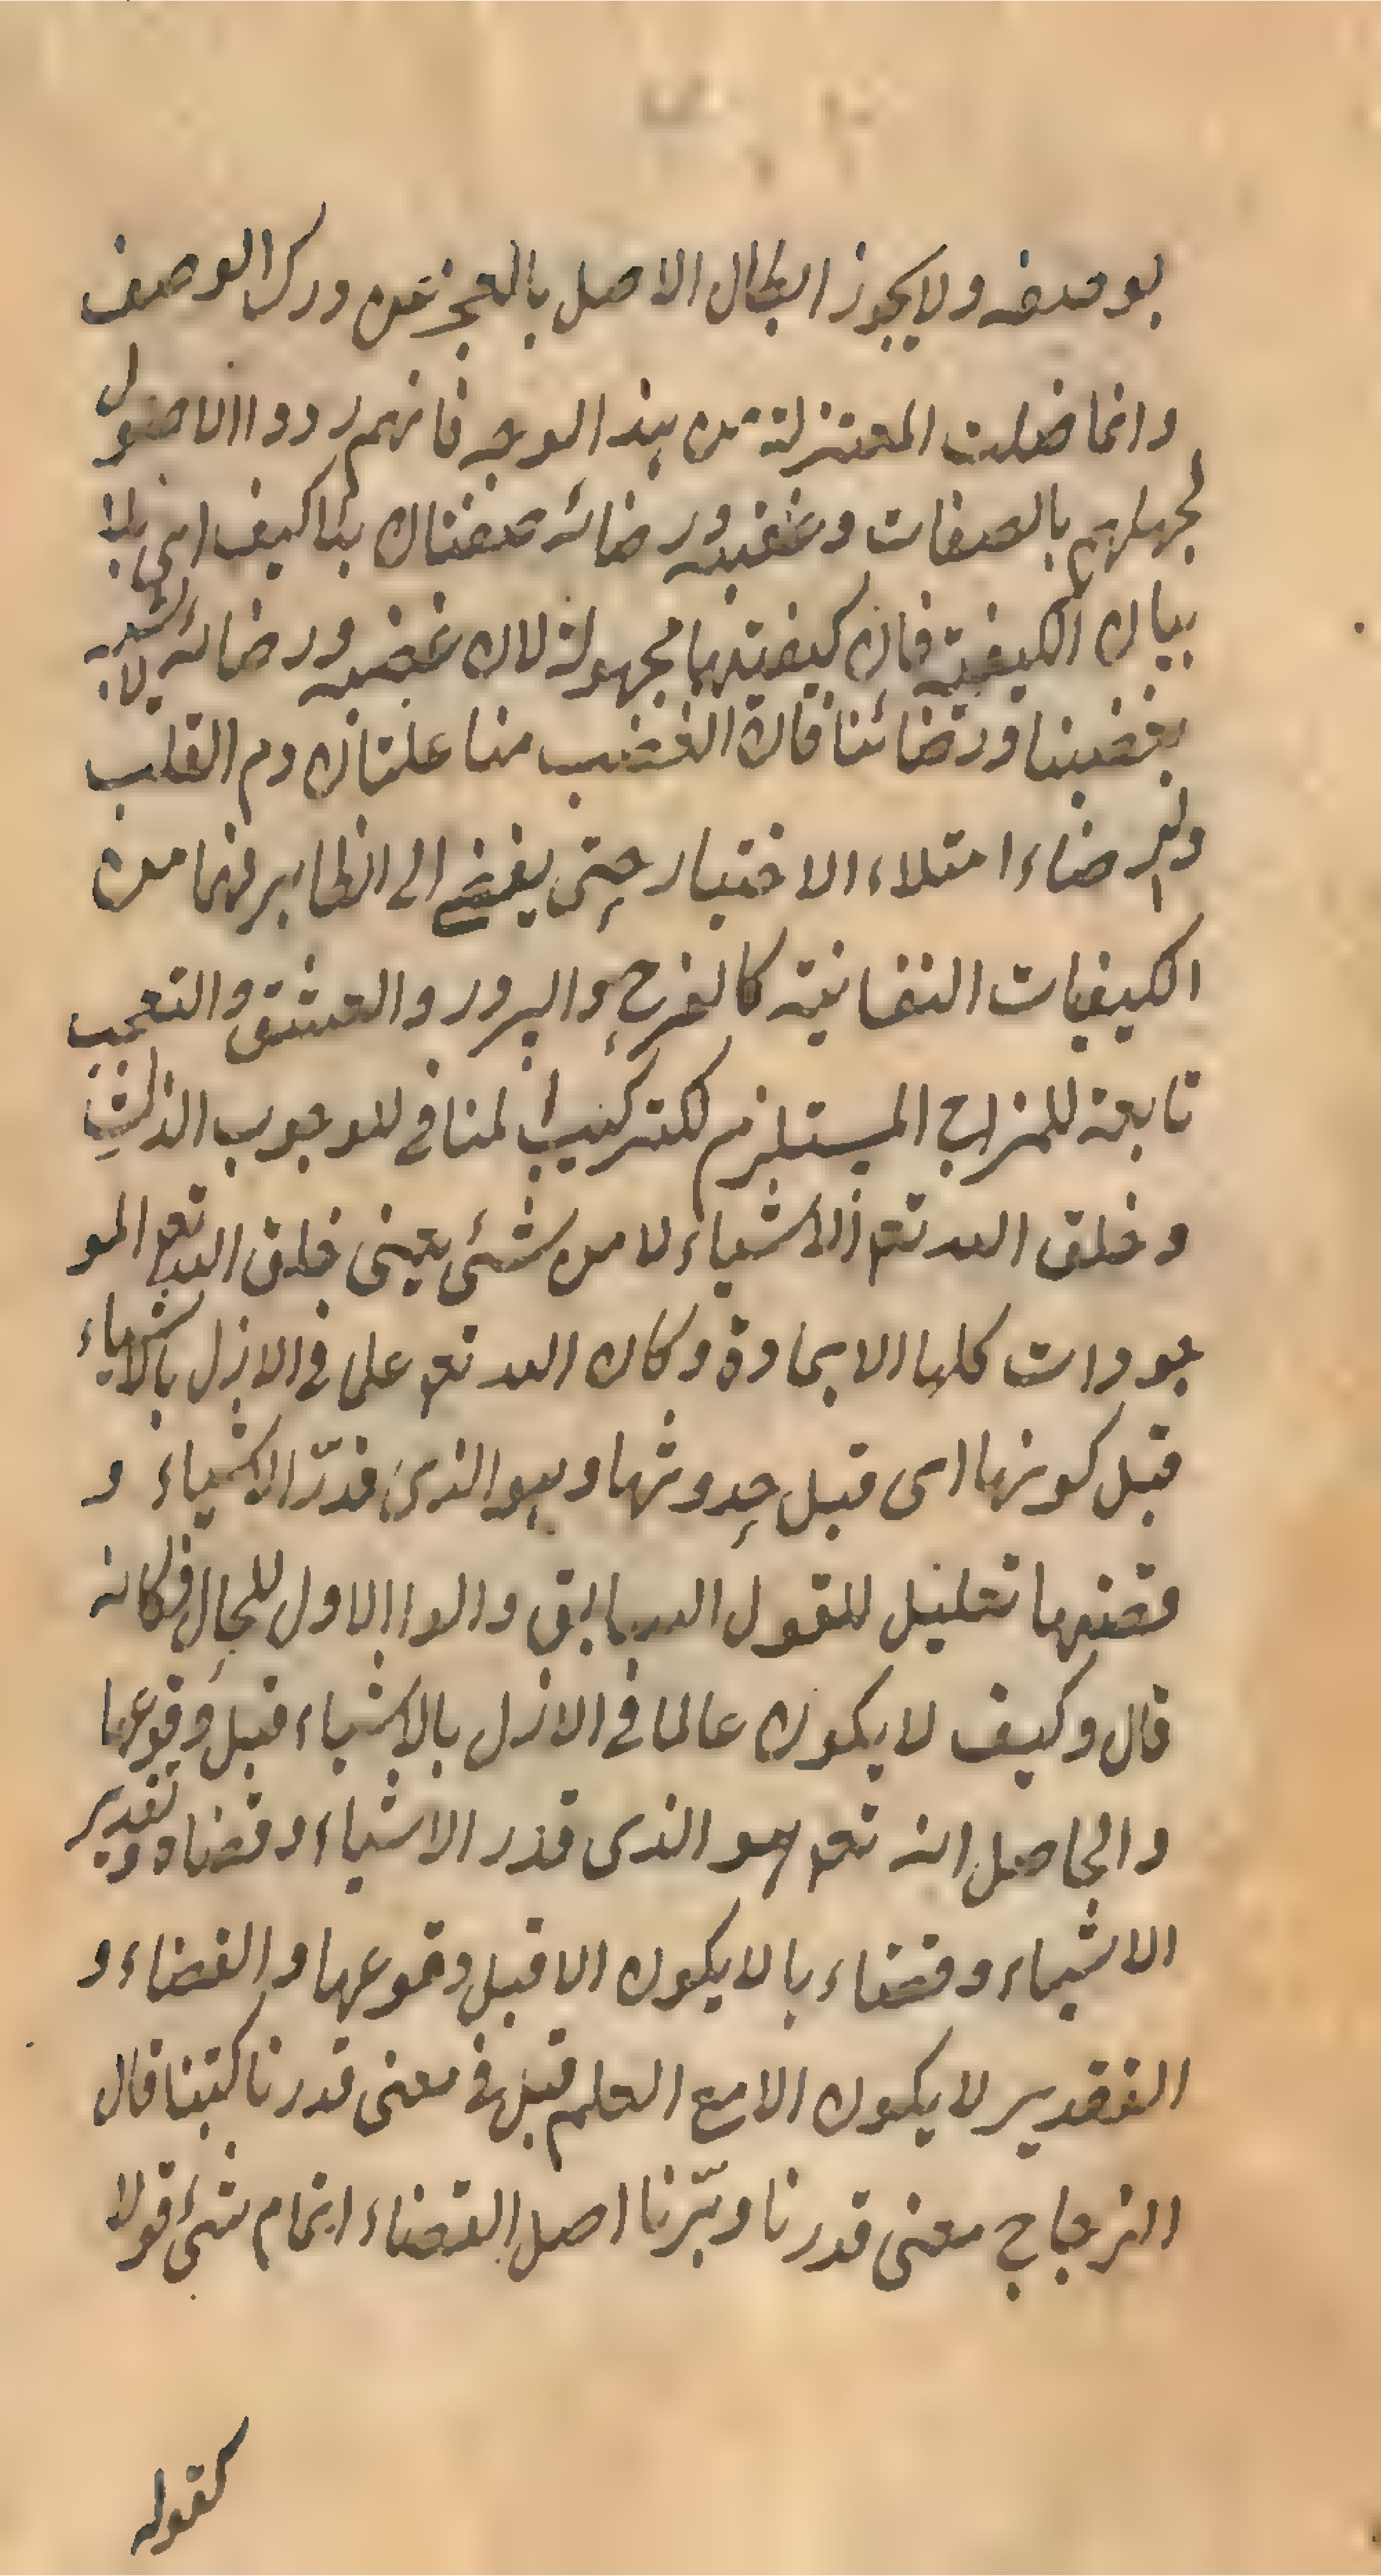 بوصفه ولا يجوز ابطال الاصل بالعجز عن درك الوصف
وانما ضلت المعتزلة من هذا الوجه فانهم ردوا الاصول
لجهلهم بالصفات وغضبه ورضائه صفتان بلا كيف اى بلا
بيان الكيفية فان كيفيتهما مجهولة لان غضبه ورضائه لا يشبه
بغضبنا ورضائنا فان الغضب منا غليان دم القلب
والرضاء امتلاء الاختيار حتى يفضى الى الظاهر فهما من
الكيفيات النفسانية كالفرح والسرور والعشق والتعجب
تابعة للمزاج المستلزم للتركيب المنافى للوجوب الذاتى
وخلق الله تعم الاشياء لا من شئ يعنى خلق الله تعم المو
جودات كلها لا بمادة وكان الله تعم علما فى الازل بالاشياء
قبل كونها اى قبل حدوثها وهو الذى قدّر الاشياء و
قضيها تعليل للقول السابق والوا الاول للحال فكانه
قال وكيف لا يكون عالما فى الازل بالاشياء قبل وقوعها
والحاصل انه تعم هو الذى قدر الاشياء وقضاه وتقدير
الاشياء وقضاءها لا يكون الا قبل وقوعها والقضاء و
التقدير لا يكون الا مع العلم قبل فى معنى قدرنا كتبنا قال
الزجاج معنى قدرنا دبّرنا اصل القضاء اتمام شئ قولا
كقوله